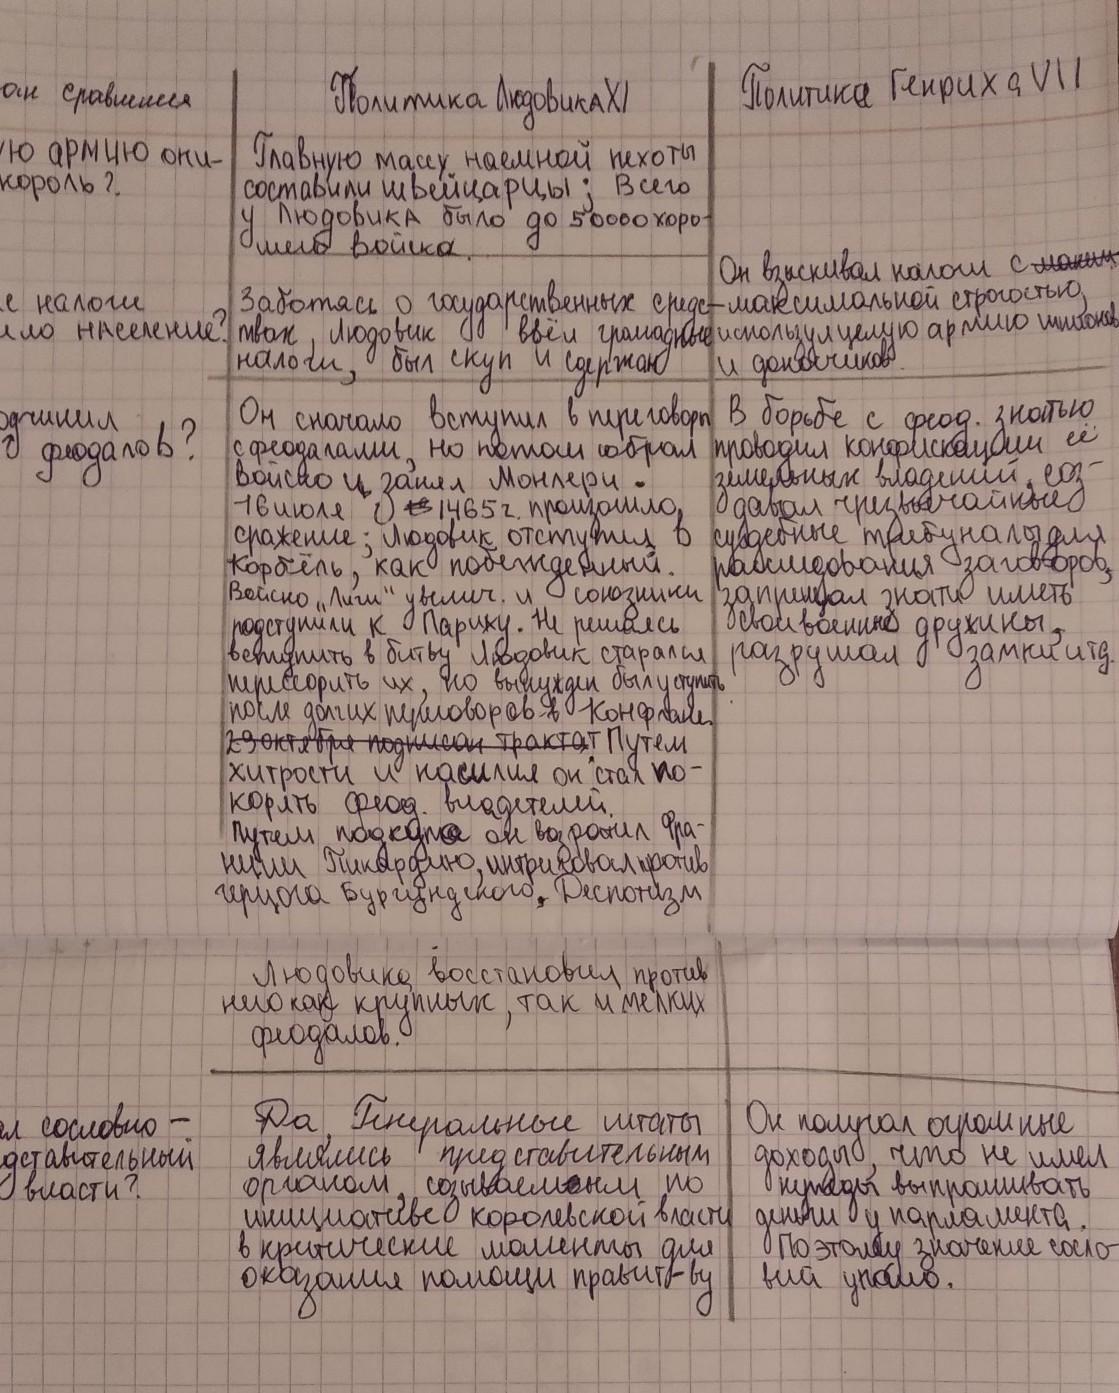 ан сравнения
Политика Людовика XI
Политика Генриха VII
ую армию опи-
король?
Главную массу наемной пехоты
составили швейцарцы; Всего
у Людовика было до 50000 хоро-
шего войска.
е налоги
ило население?
Заботясь о государственных средс-
твах, Людовик ввёл громадные
налоги, был скуп и сдержан
Он взыскивал налоги с
максимальной строгостью,
используя целую армию шпионов
и доносчиков.
одчинил
феодалов?
Он сначало вступил в переговоры
с феодалами, но потом собрал
войско и занял Монлери.
16 июля 1465 г. произошло
сражение; Людовик отступил в
Корбёль, как побежденный.
Войско „Лиги" увелич. и союзники
подступили к Парижу. Не решаясь
вступить в битву Людовик старался
перессорить их, но вынужден был уступить
после долгих переговоров в Конфлане.
29 октября подписан трактат Путем
хитрости и насилия он стал по-
корять феод. владетелей.
Путем подкупа он возратил Фра-
нции Пикардию, интриговал против
герцога Бургундского. Деспотизм
Людовика восстановил против
него как крупных, так и мелких
феодалов.
В борьбе с феод. знатью
проводил конфискации её
земельных владений, соз-
давал чрезвычайные
судебные трибуналы для
расследования заговоров,
запрещал знати иметь
свои военные дружины,
разрушал замки итд.
ал сословно-
дставительный
власти?
Да, Генеральные штаты
являлись представительным
органом, созываемым по
инициативе королевской власти
в критические моменты для
оказания помощи правит-ву
Он получал огромные
доходы, что не имел
нужды выпрашивать
деньги у парламента.
Поэтому значение сосло-
вий упало.